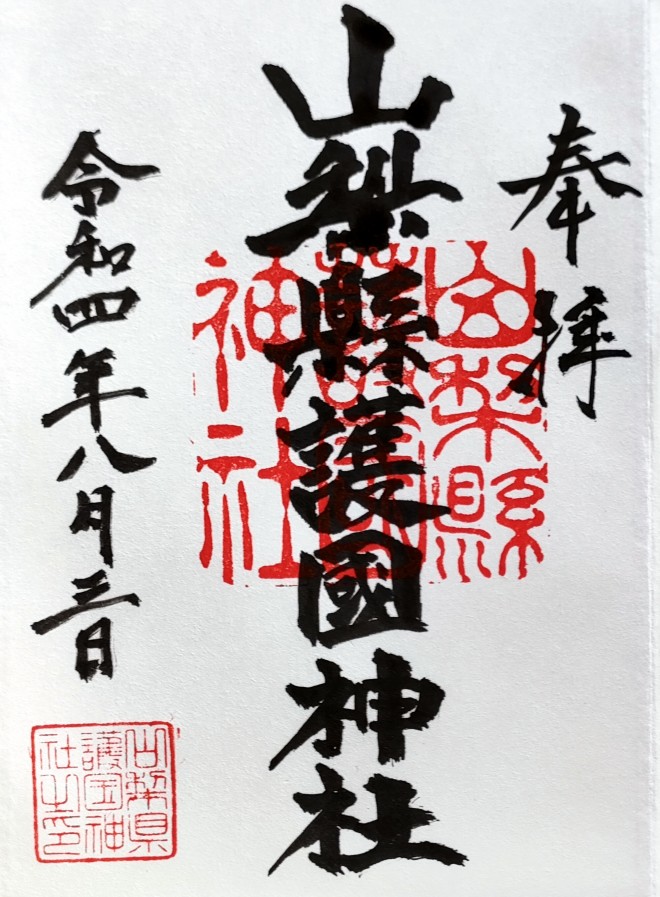 奉拝
山梨縣護國神社
山梨縣護國神社
令和四年八月三日
山梨県
護国神
社之印